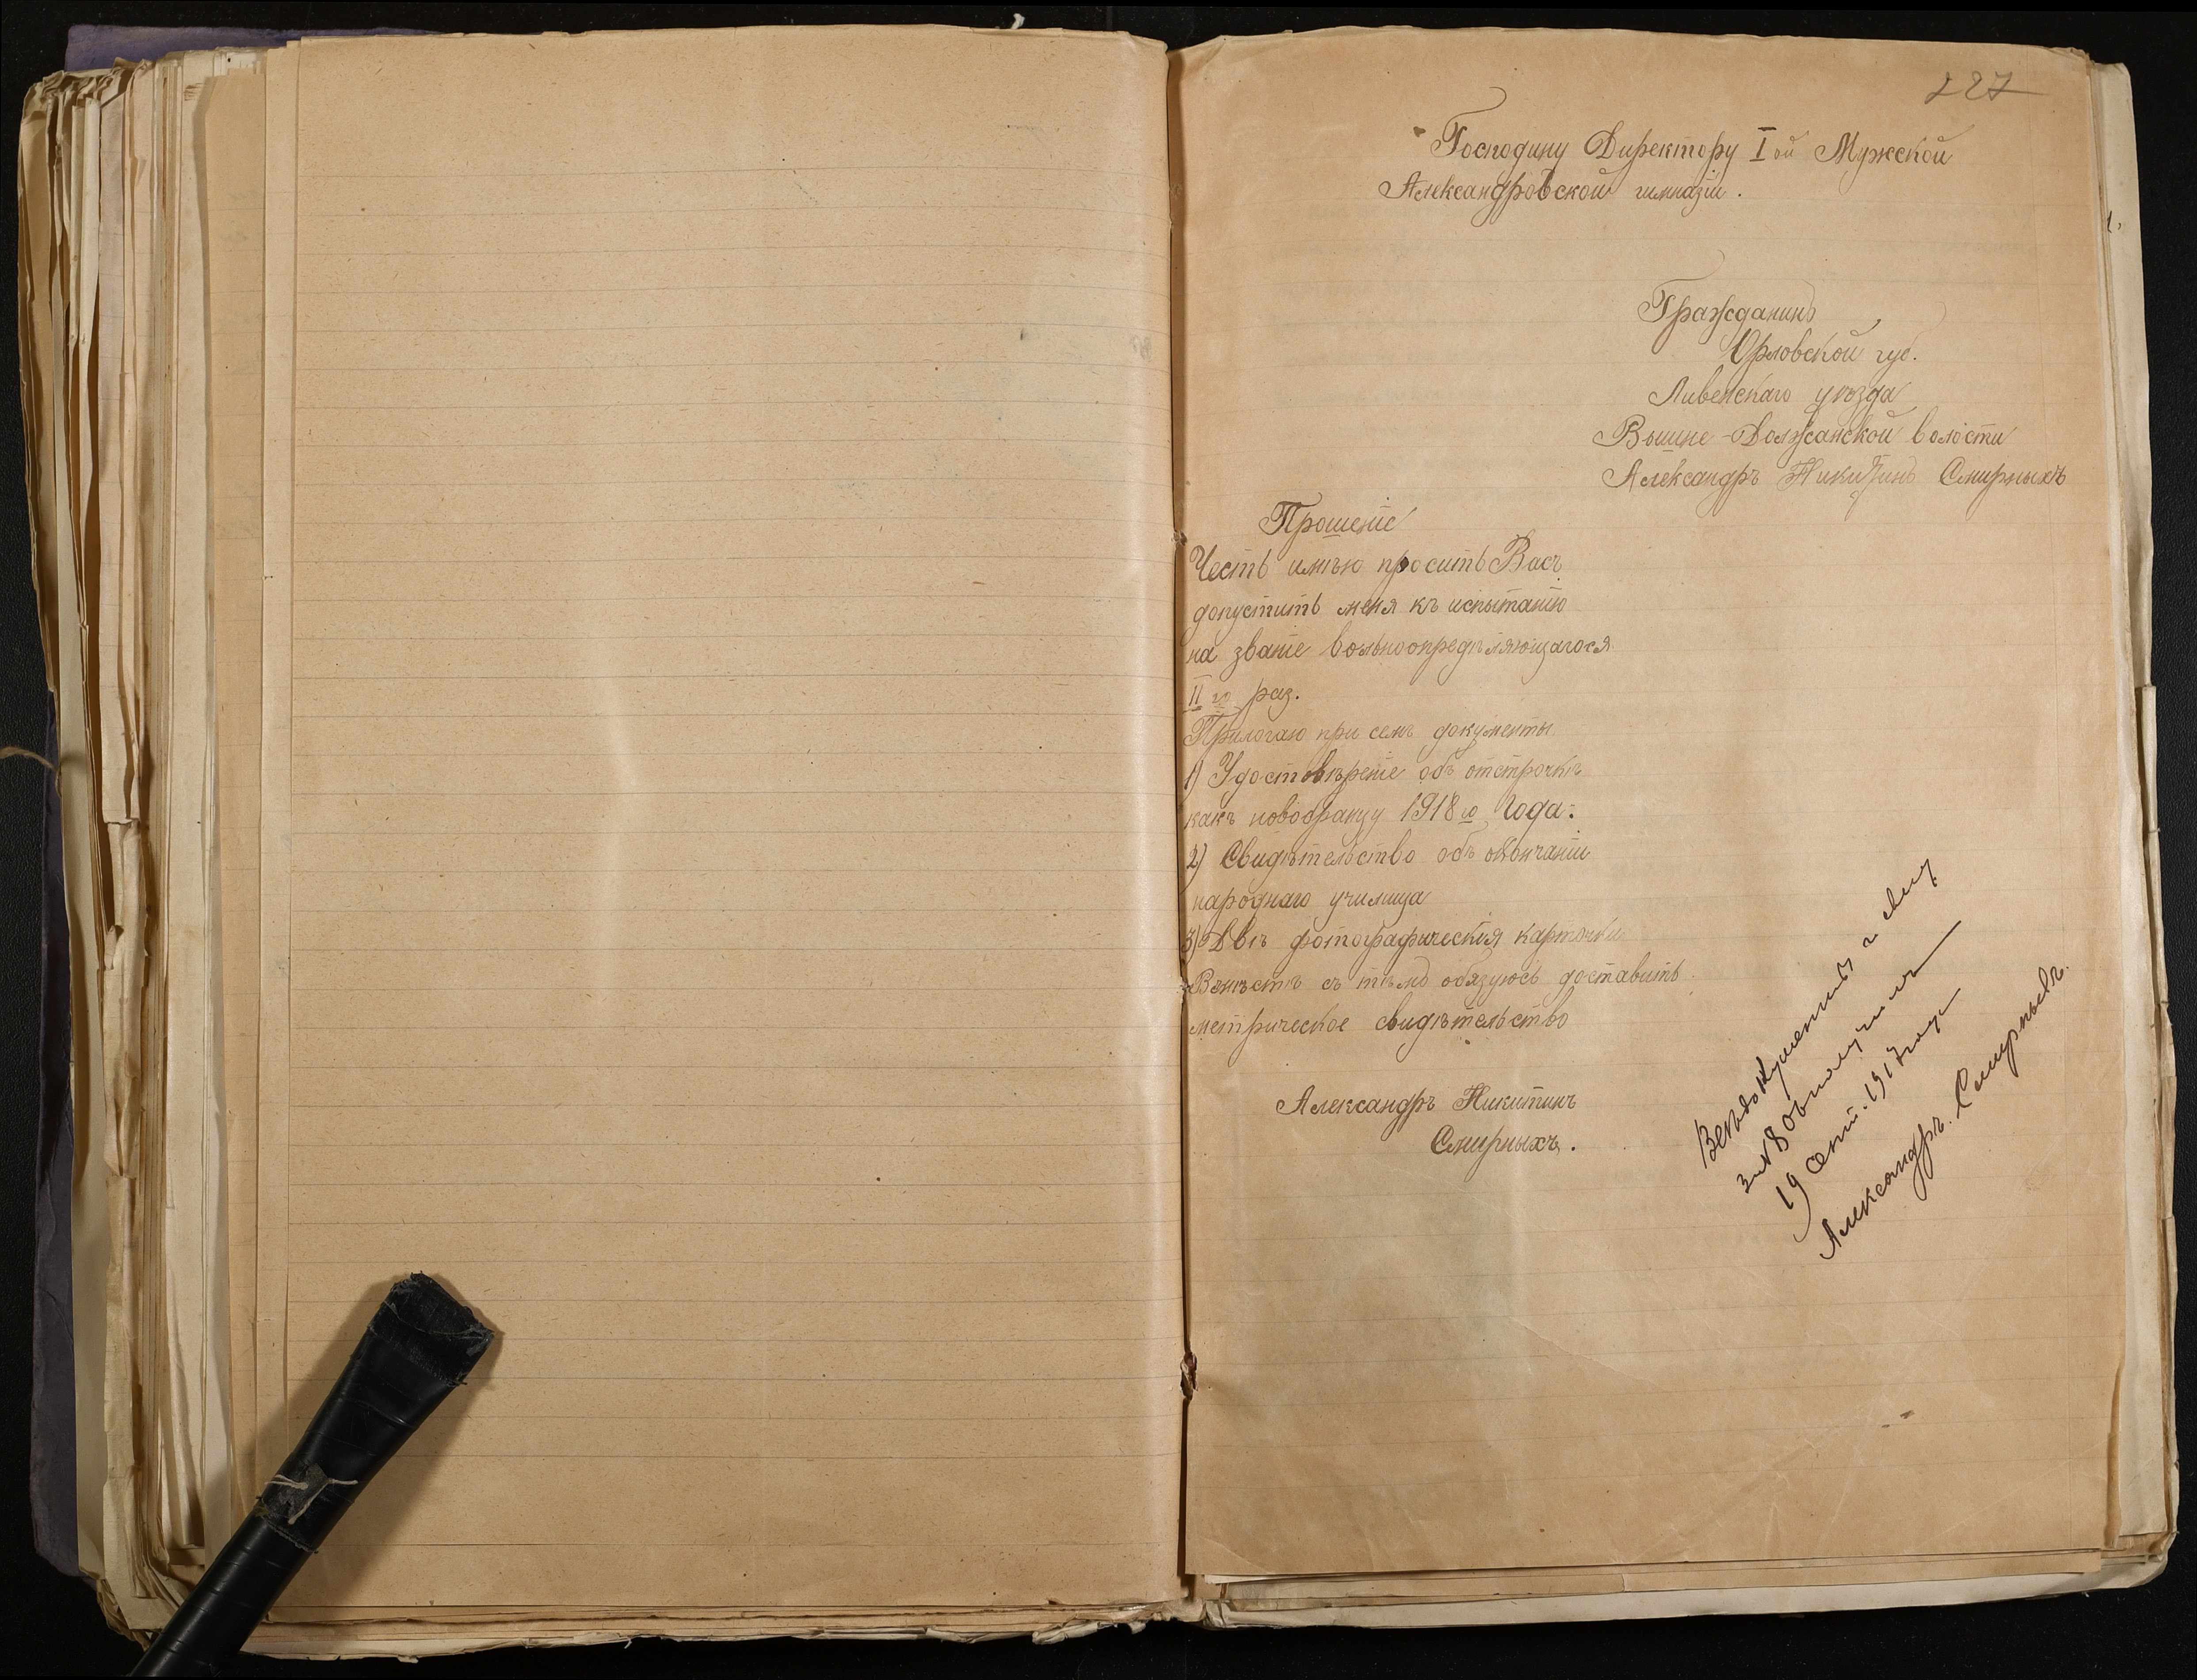 227
Господину Директору I ой Мужской
Александровской гимназіи.
Гражданинъ
Орловской губ.
Ливенскаго уѣзда
Вышне-Должанской волости
Александръ Никитинъ Смирныхъ
Прошеніе
Честь имѣю просить Васъ
допустить меня къ испытанію
на званіе вольноопредѣляющагося
II го раз.
Прилогаю при семъ документы
1) Удостовѣреніе объ отстрочкѣ
какъ новобранцу 1918 го Года:
2) Свидѣтельство объ окончаніи
народнаго училища
3) Двѣ фотографическія карточки
Вмѣстѣ съ тѣмъ обязуюсь доставить
метрическое свидѣтельство
Александръ Никитинъ
Смирныхъ.
документы
получилъ
19 сент. 1917 года
Александръ. Смирныхъ.